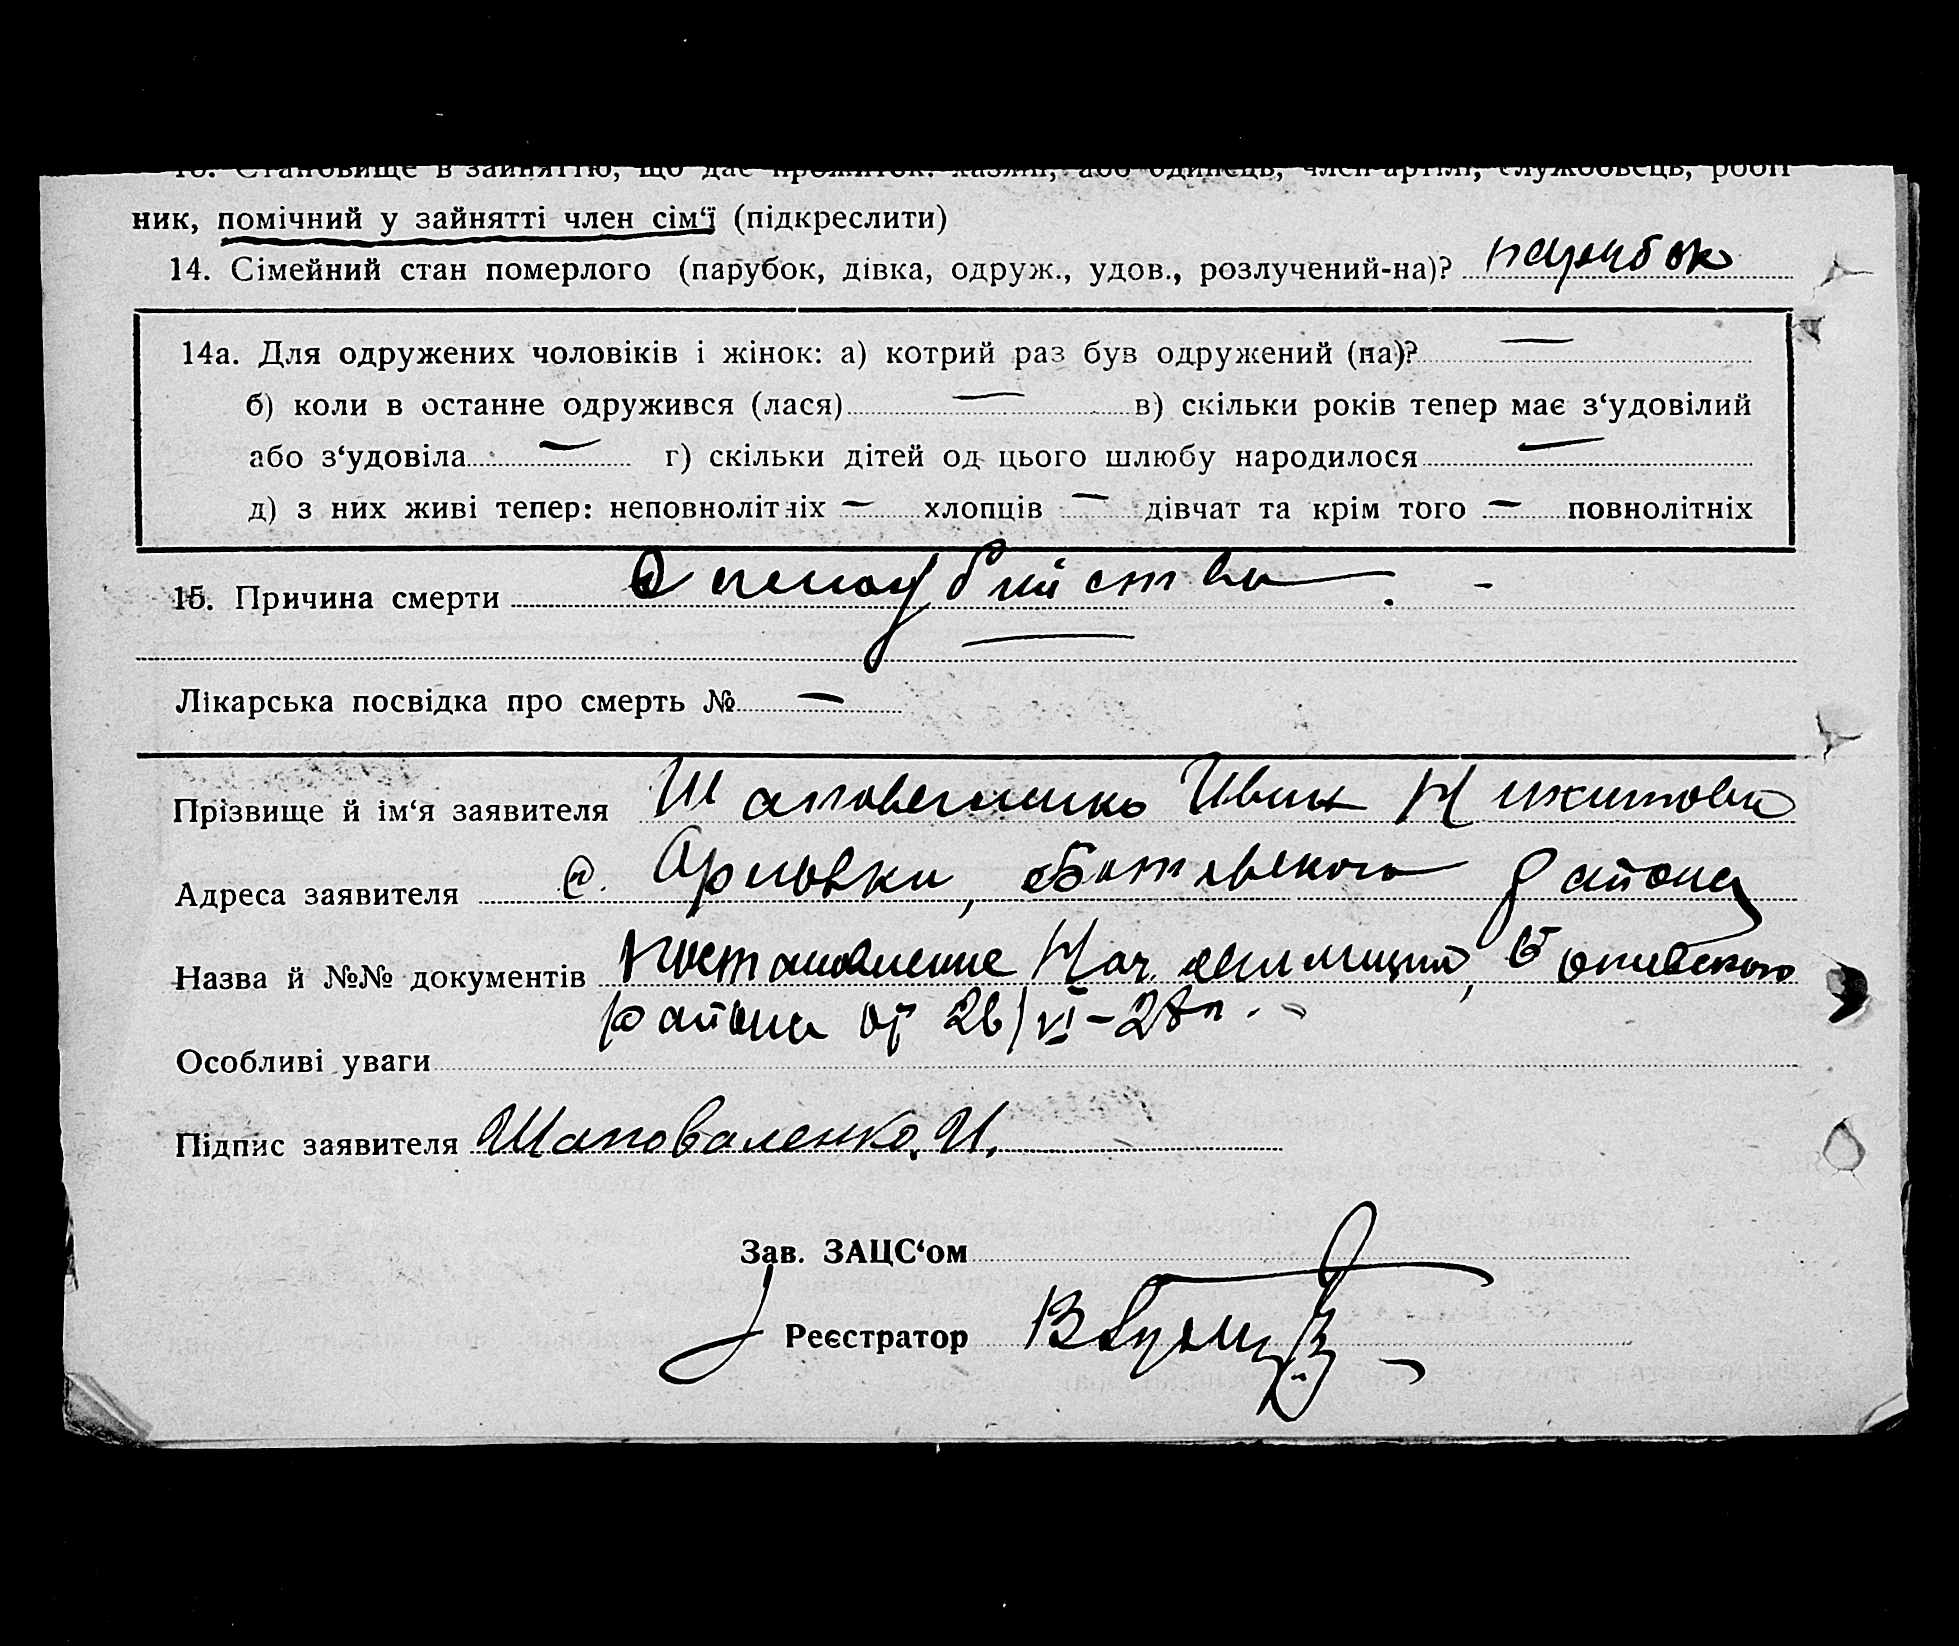 13. Становище в зайняттю, що дає прожиток: хазяїн, або одинець, член артілі, службовець, робіт
ник, помічний у зайнятті член сім‘ї (підкреслити)
14. Сімейний стан померлого (парубок, дівка, одруж., удов., розлучений-на)? парубок
14а. Для одружених чоловіків і жінок: а) котрий раз був одружений (на)? —
б) коли в останне одружився (лася) — в) скільки років тепер має з‘удовілий
або з‘удовіла — г) скільки дітей од цього шлюбу народилося —
д) з них живі тепер: неповнолітніх — хлопців — дівчат та крім того — повнолітніх
15. Причина смерти Самоубийства. -
Лікарська посвідка про смерть № —
Прізвище й ім‘я заявителя Шаповаленко Иван Никитович
Адреса заявителя с. Орловки, района
Назва й №№ документів Постановление Нач. милиции,
района от 26/VI-28г.
Особливі уваги
Підпис заявителя Шаповаленко. И.
Зав. ЗАЦС‘ом
Реєстратор